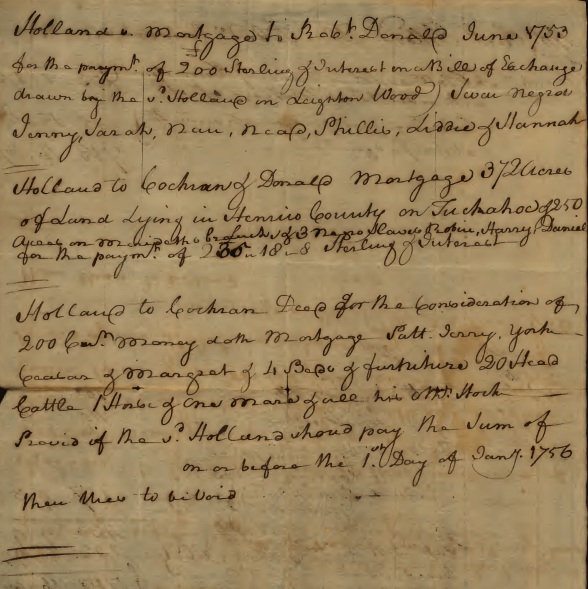 Holland Mortgage to Robt. Donald June 1753
for the paymt. of 200 Sterling & Interest on a Bill of Exchange
drawn by the sd. Holland on Leighton Wood) Negros
Jenny, Sarah, Nan, Phillis, Liddie & Hannah
Holland to Cochran & Donald Mortgage 372 Acres
of Land Lying in Henrico County on Tuckahoe & 250
Acres on Branch & 3 Negro Slaves Robin, Harry, Daniel
for the paymt. of 18 " 8 Sterling & Interest
Holland to Cochran Deed for the Consideration of
200 Money doth Mortgage Patt. York
& Margret & 4 Beds & furniture 20 Head
Cattle 1 Horse & One Mare & all his Stock
Provid if the sd. Holland shoud pay the Sum of
on or before the 1st. Day of Jany. 1756
then thes to be Void